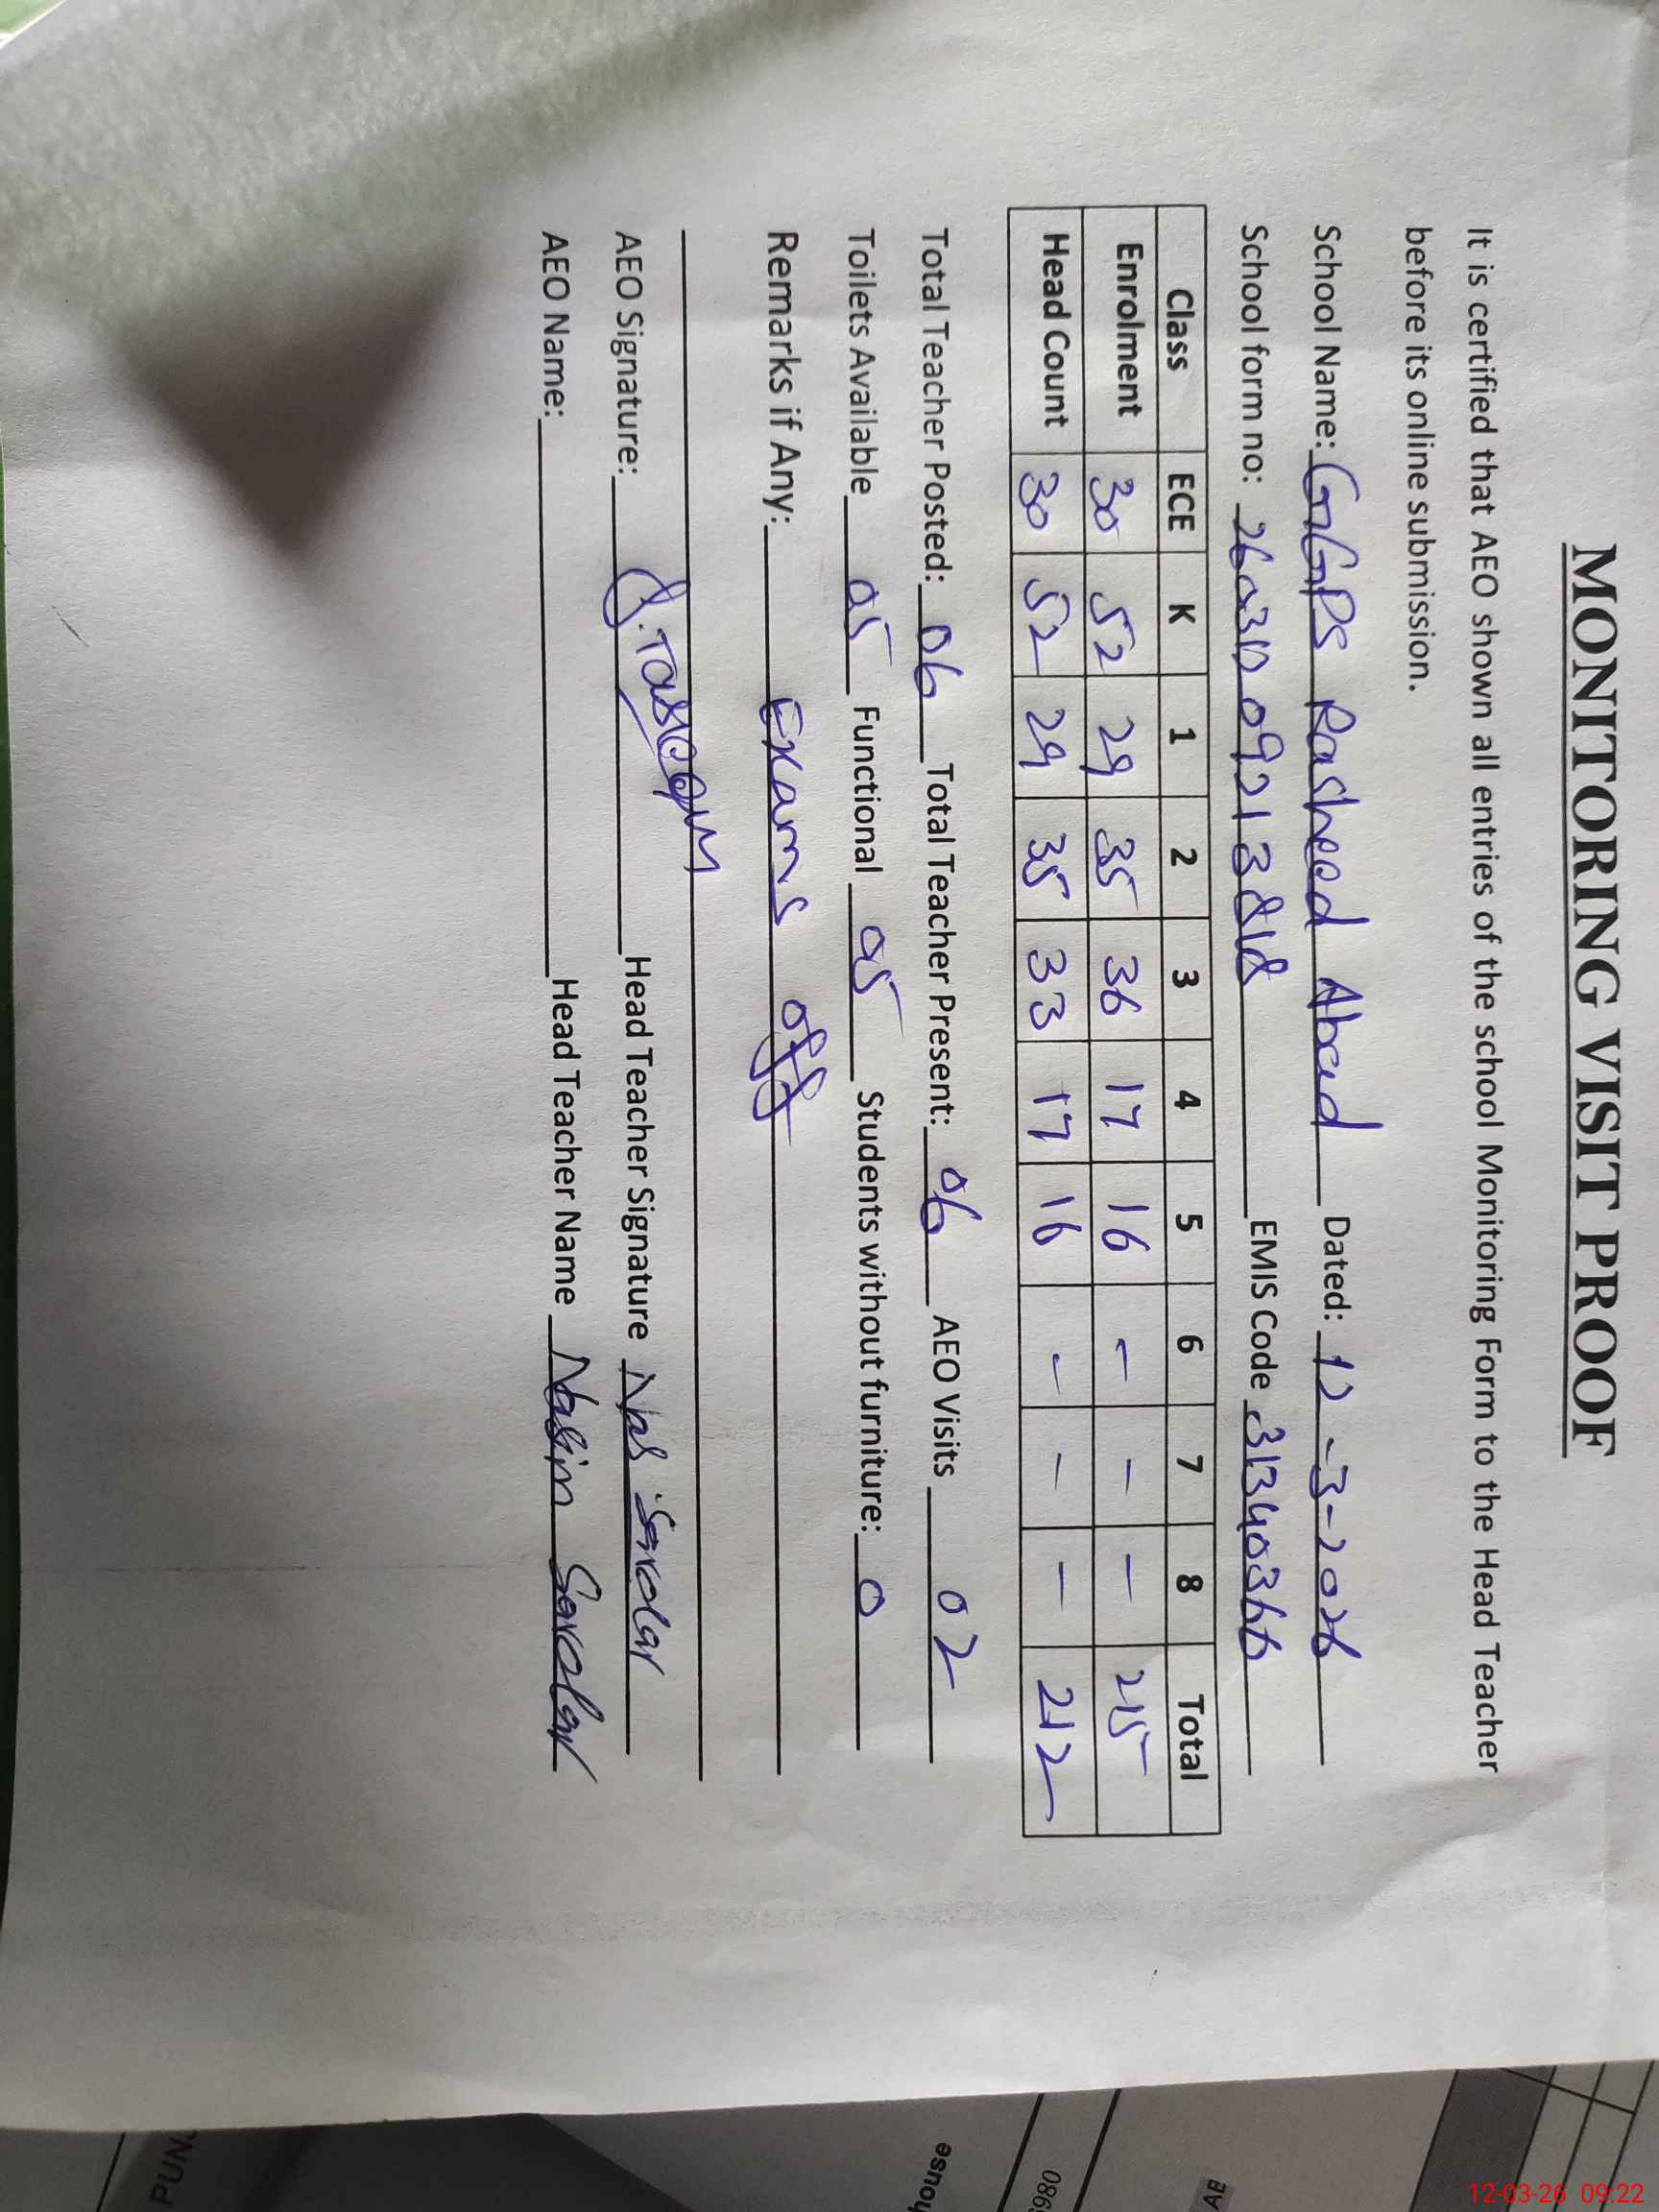 MONITORING VISIT PROOF
It is certified that AEO shown all entries of the school Monitoring Form to the Head Teacher
before its online submission.
School Name: GGPS Rasheed Abad Dated: 12-3-2026
School form no: EMIS Code 31340366
Class ECE K 1 2 3 4 5 6 7 8 Total
Enrolment 30 52 29 35 36 17 16 - - - 215
Head Count 30 52 29 35 33 17 16 - - - 212
Total Teacher Posted: 06 Total Teacher Present: 06 AEO Visits 02
Toilets Available 05 Functional 05 Students without furniture: 0
Remarks if Any: Exams off
AEO Signature: Head Teacher Signature
AEO Name: Head Teacher Name Nasim Sardar
12-03-26 09:22